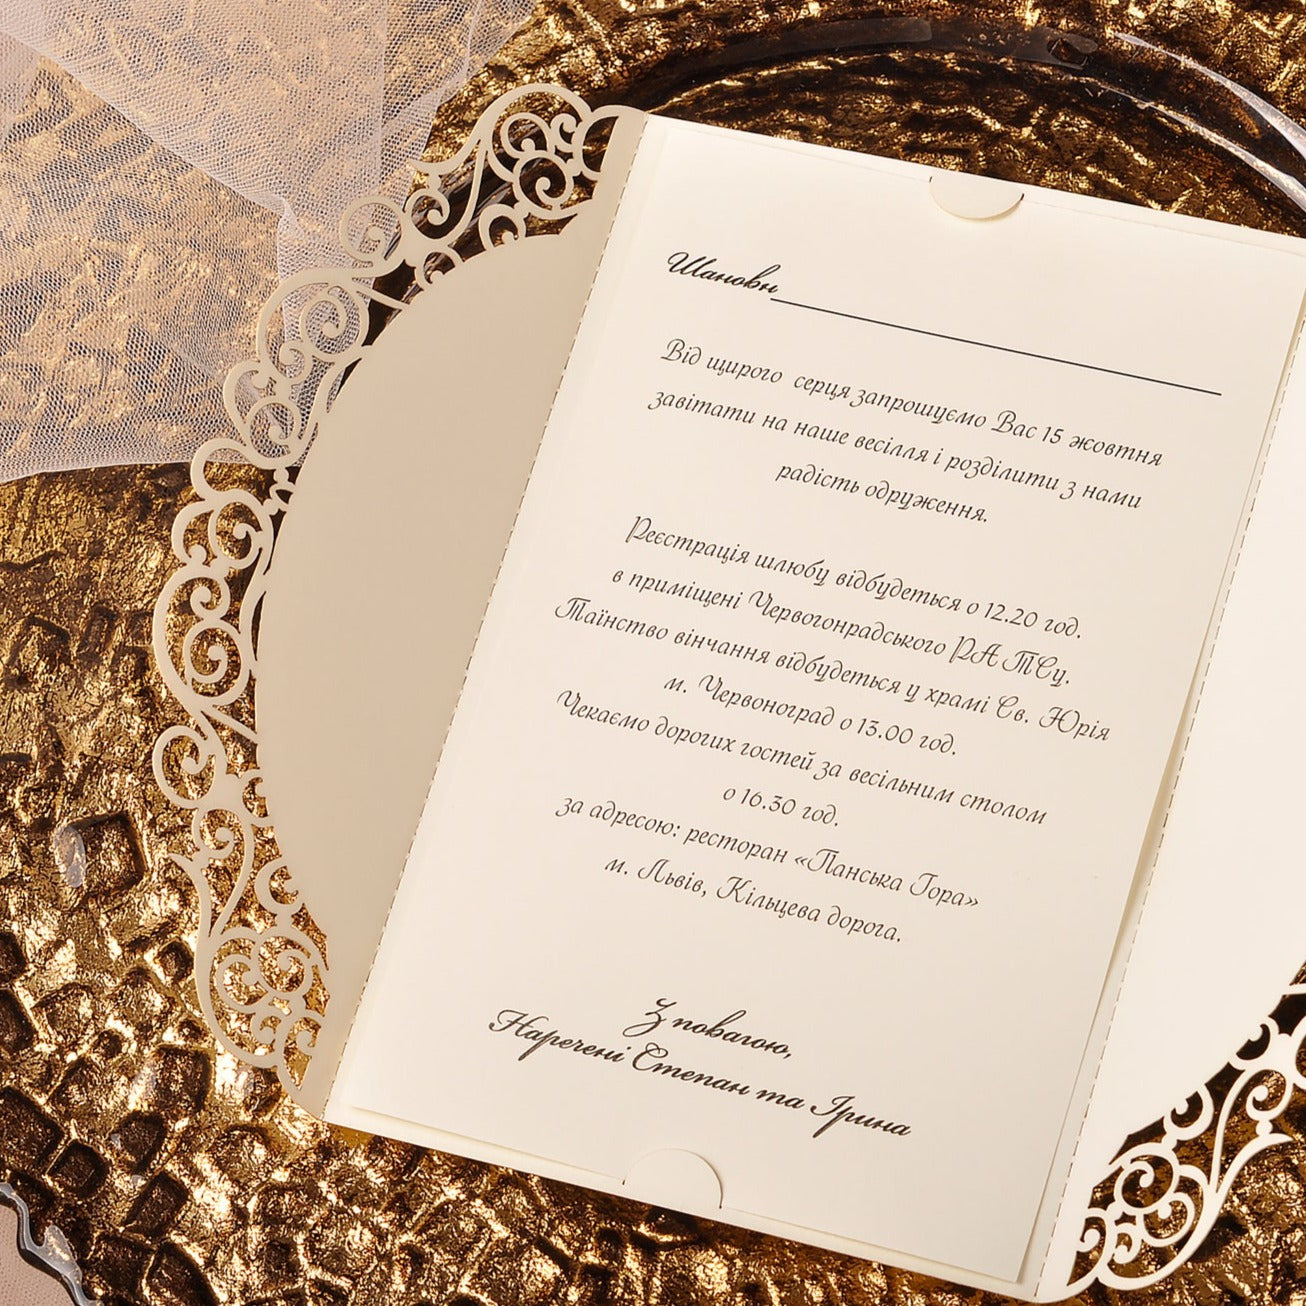 Шановн
Від щирого серця запрошуємо Вас 15 жовтня
завітати на наше весілля і розділити з нами
радість одруження.
Реєстрація шлюбу відбудеться о 12.20 год.
в приміщені Червогонрадського РАТСу.
Таїнство вінчання відбудеться у храмі Св. Юрія
м. Червоноград о 13.00 год.
Чекаємо дорогих гостей за весільним столом
о 16.30 год.
за адресою: ресторан «Панська Гора»
м. Львів, Кільцева дорога.
З повагою,
Наречені Степан та Ірина